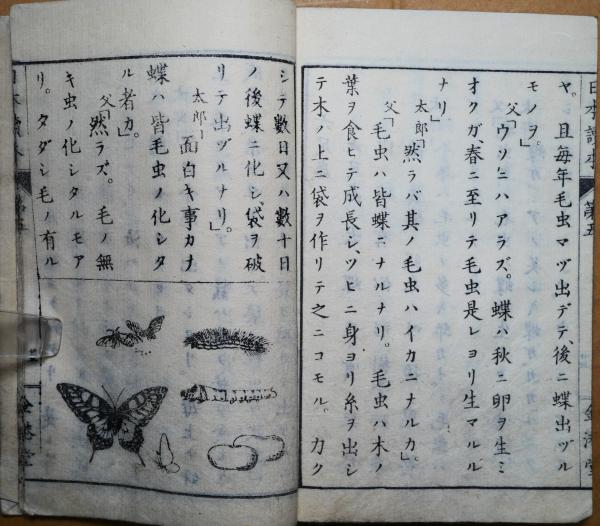 日本讀本
第五
金港堂
ヤ。且每年毛虫マヅ出デテ、後ニ蝶出ヅル
モノヲ。
父「ウソニハアラズ。蝶ハ秋ニ卵ヲ生ミ
オクガ、春ニ至リテ毛虫是レヨリ生マルル
ナリ」
太郎「然ラバ其ノ毛虫ハイカニナルカ」。
父「毛虫ハ皆蝶ニナルナリ。毛虫ハ木ノ
葉ヲ食ヒテ成長シ、ツヒニ身ヨリ糸ヲ出シ
テ木ノ上ニ袋ヲ作リテ之ニコモル。カク
シテ數日又ハ數十日
ノ後蝶ニ化シ、袋ヲ破
リテ出ヅルナリ。」
太郎「面白キ事カナ
蝶ハ皆毛虫ノ化シタ
ル者カ」。
父「然ラズ。毛ノ無
キ虫ノ化シタルモア
リ。タダシ毛ノ有ル
日本讀本
第五
金港堂